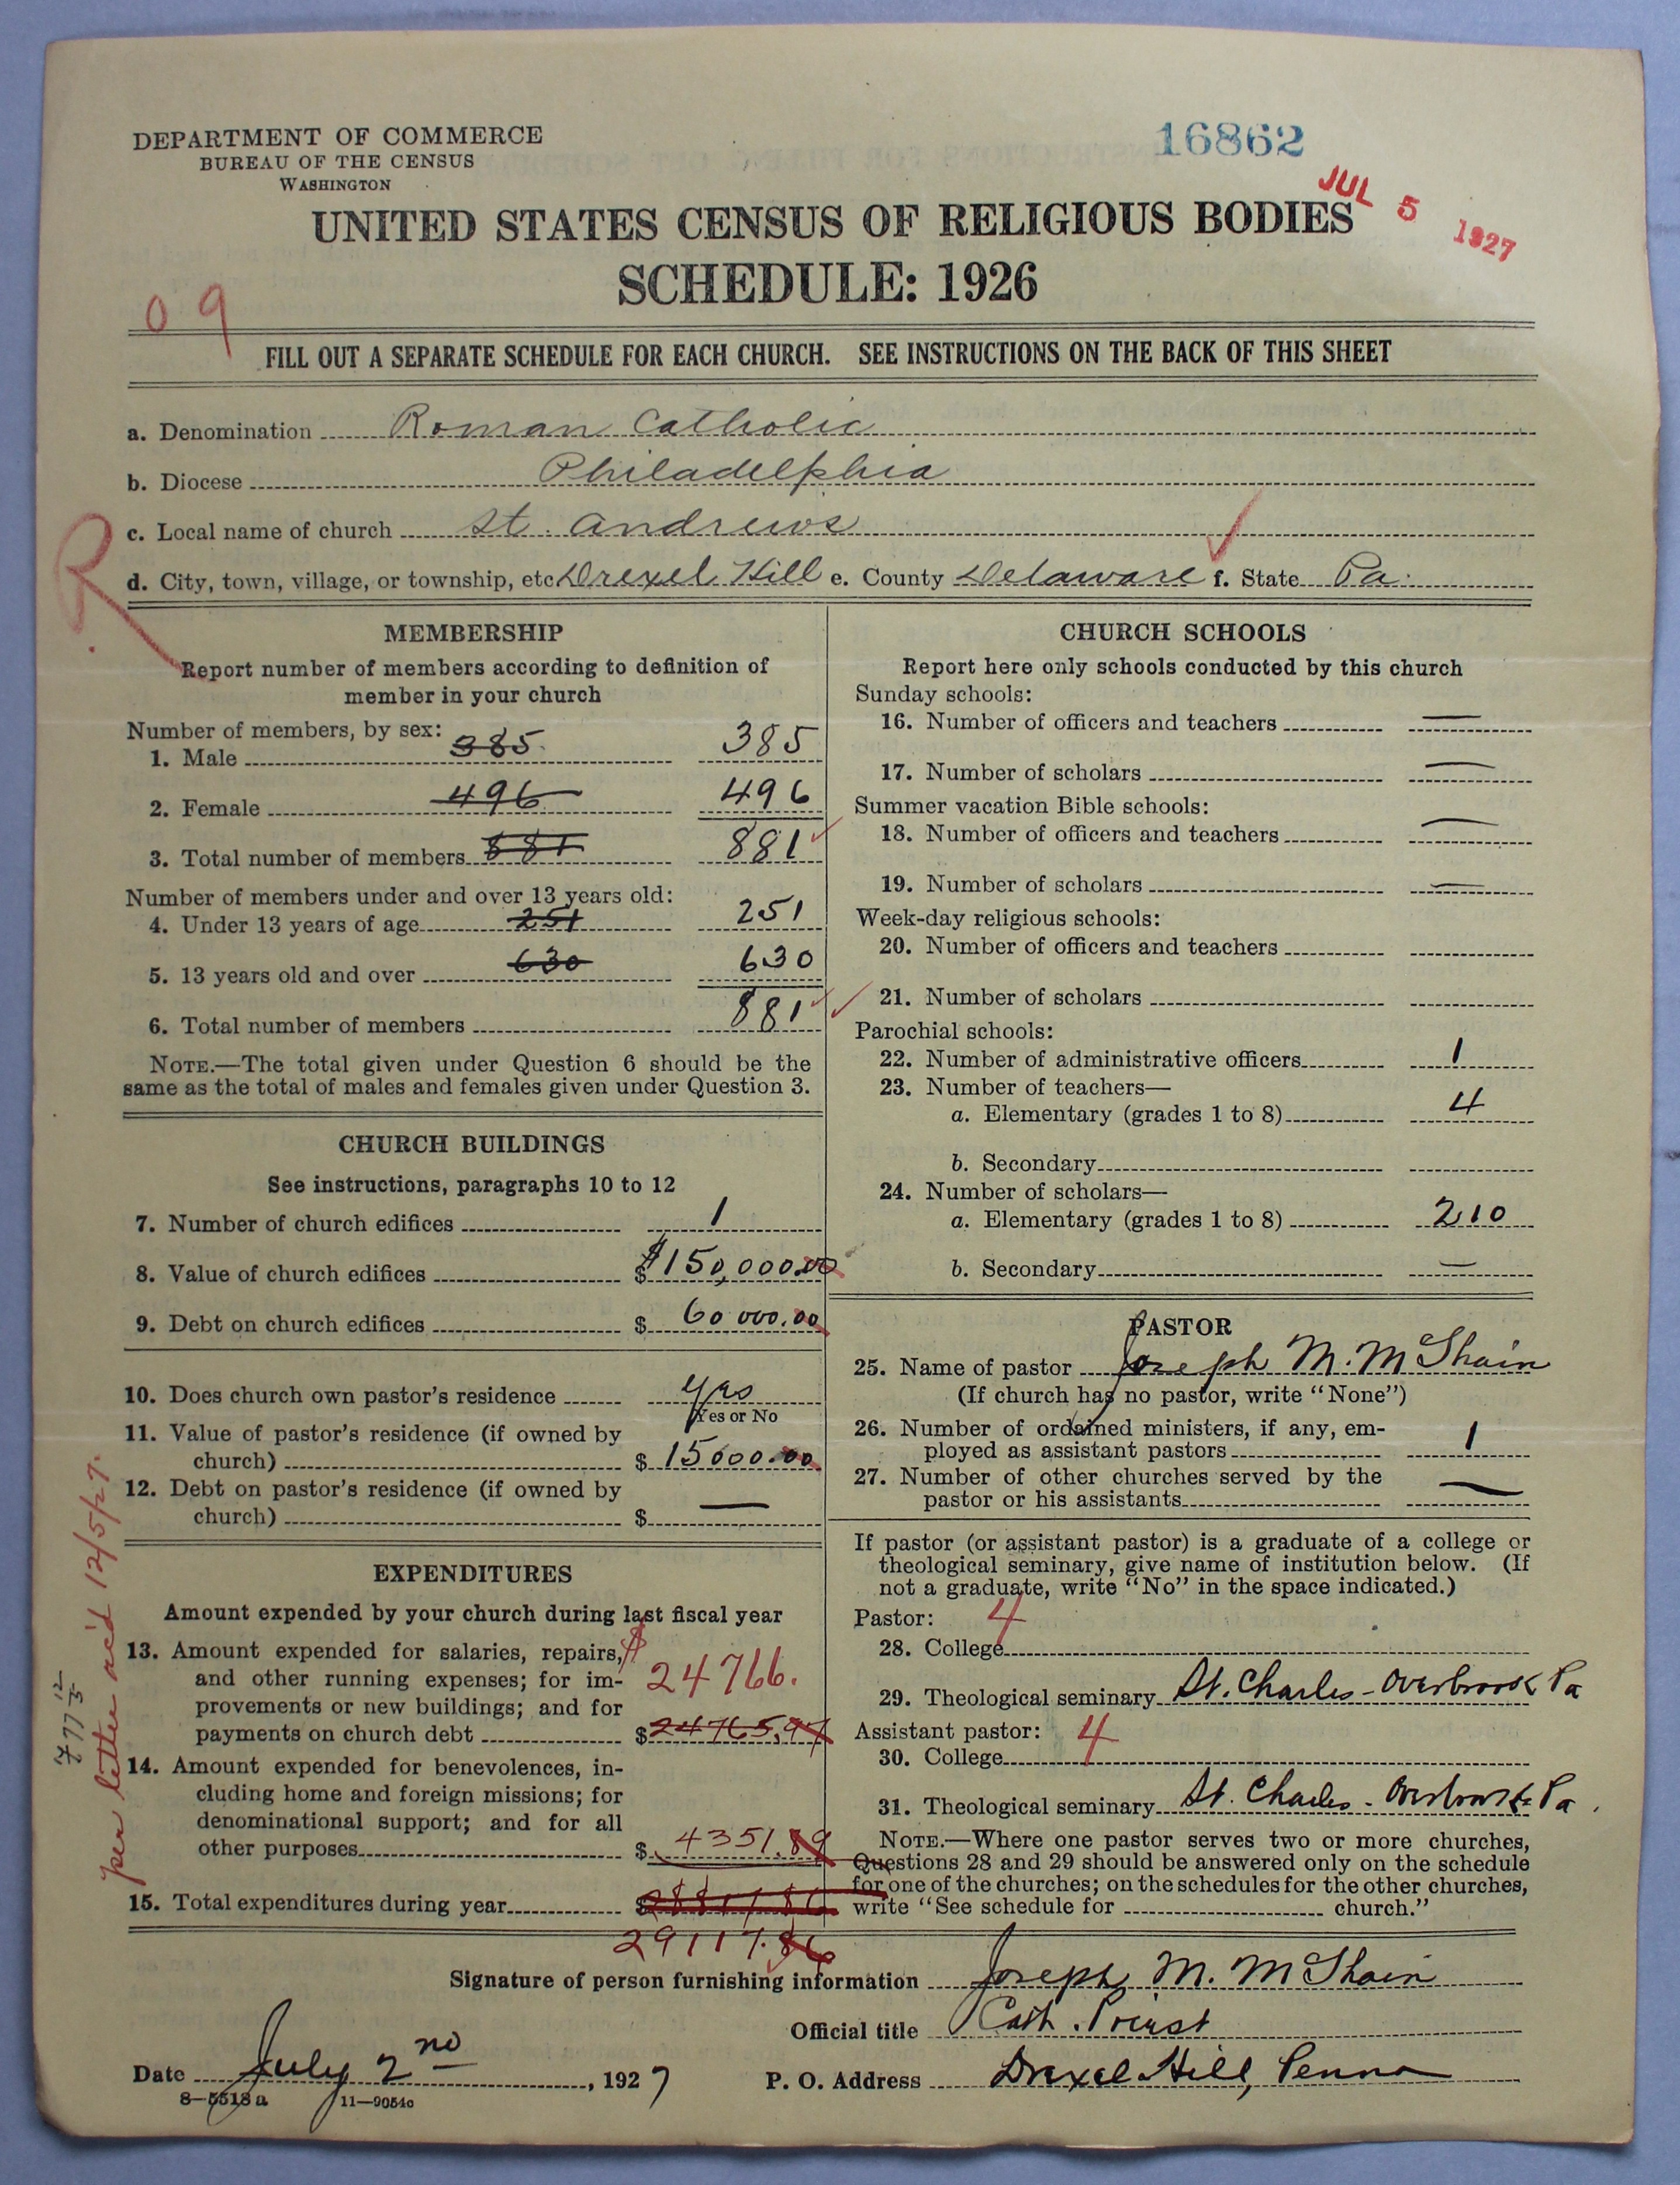 DEPARTMENT OF COMMERCE
BUREAU OF THE CENSUS
WASHINGTON
16862
JUL 5 1927
UNITED STATES CENSUS OF RELIGIOUS BODIES
SCHEDULE: 1926
09
FILL OUT A SEPARATE SCHEDULE FOR EACH CHURCH. SEE INSTRUCTIONS ON THE BACK OF THIS SHEET
a. Denomination Roman Catholic
b. Diocese Philadelphia
c. Local name of church St. Andrews
d. City, town, village, or township, etc Drexel Hill e. County Delaware f. State Pa.
R
MEMBERSHIP
Report number of members according to definition of
member in your church
Number of members, by sex:
1. Male 385 385
2. Female 496 496
3. Total number of members 881 881
Number of members under and over 13 years old:
4. Under 13 years of age 251 251
5. 13 years old and over 630 630
6. Total number of members 881
NOTE.—The total given under Question 6 should be the
same as the total of males and females given under Question 3.
CHURCH BUILDINGS
See instructions, paragraphs 10 to 12
7. Number of church edifices 1
8. Value of church edifices $ $150,000.00
9. Debt on church edifices $ 60 000.00
10. Does church own pastor's residence yes
Yes or No
11. Value of pastor's residence (if owned by
church) $ 15000.00
12. Debt on pastor's residence (if owned by
church) $ —
EXPENDITURES
Amount expended by your church during last fiscal year
13. Amount expended for salaries, repairs, $
and other running expenses; for im- 24766.
provements or new buildings; and for
payments on church debt $ 24765.97
14. Amount expended for benevolences, in-
cluding home and foreign missions; for
denominational support; and for all
other purposes $ 4351.89
15. Total expenditures during year $
29117.86
per letter rec'd 12/5/27.
CHURCH SCHOOLS
Report here only schools conducted by this church
Sunday schools:
16. Number of officers and teachers —
17. Number of scholars —
Summer vacation Bible schools:
18. Number of officers and teachers —
19. Number of scholars —
Week-day religious schools:
20. Number of officers and teachers
21. Number of scholars
Parochial schools:
22. Number of administrative officers 1
23. Number of teachers—
a. Elementary (grades 1 to 8) 4
b. Secondary
24. Number of scholars—
a. Elementary (grades 1 to 8) 210
b. Secondary —
PASTOR
25. Name of pastor Joseph M. McShain
(If church has no pastor, write "None")
26. Number of ordained ministers, if any, em-
ployed as assistant pastors 1
27. Number of other churches served by the
pastor or his assistants —
If pastor (or assistant pastor) is a graduate of a college or
theological seminary, give name of institution below. (If
not a graduate, write "No" in the space indicated.)
Pastor: 4
28. College
29. Theological seminary St. Charles - Overbrook Pa
Assistant pastor: 4
30. College
31. Theological seminary St. Charles - Overbrook Pa.
NOTE.—Where one pastor serves two or more churches,
Questions 28 and 29 should be answered only on the schedule
for one of the churches; on the schedules for the other churches,
write "See schedule for church."
Signature of person furnishing information Joseph M. McShain
Official title Cath. Priest
Date July 2nd, 1927 P. O. Address Drexel Hill, Penna
8—5518a 11—9054c